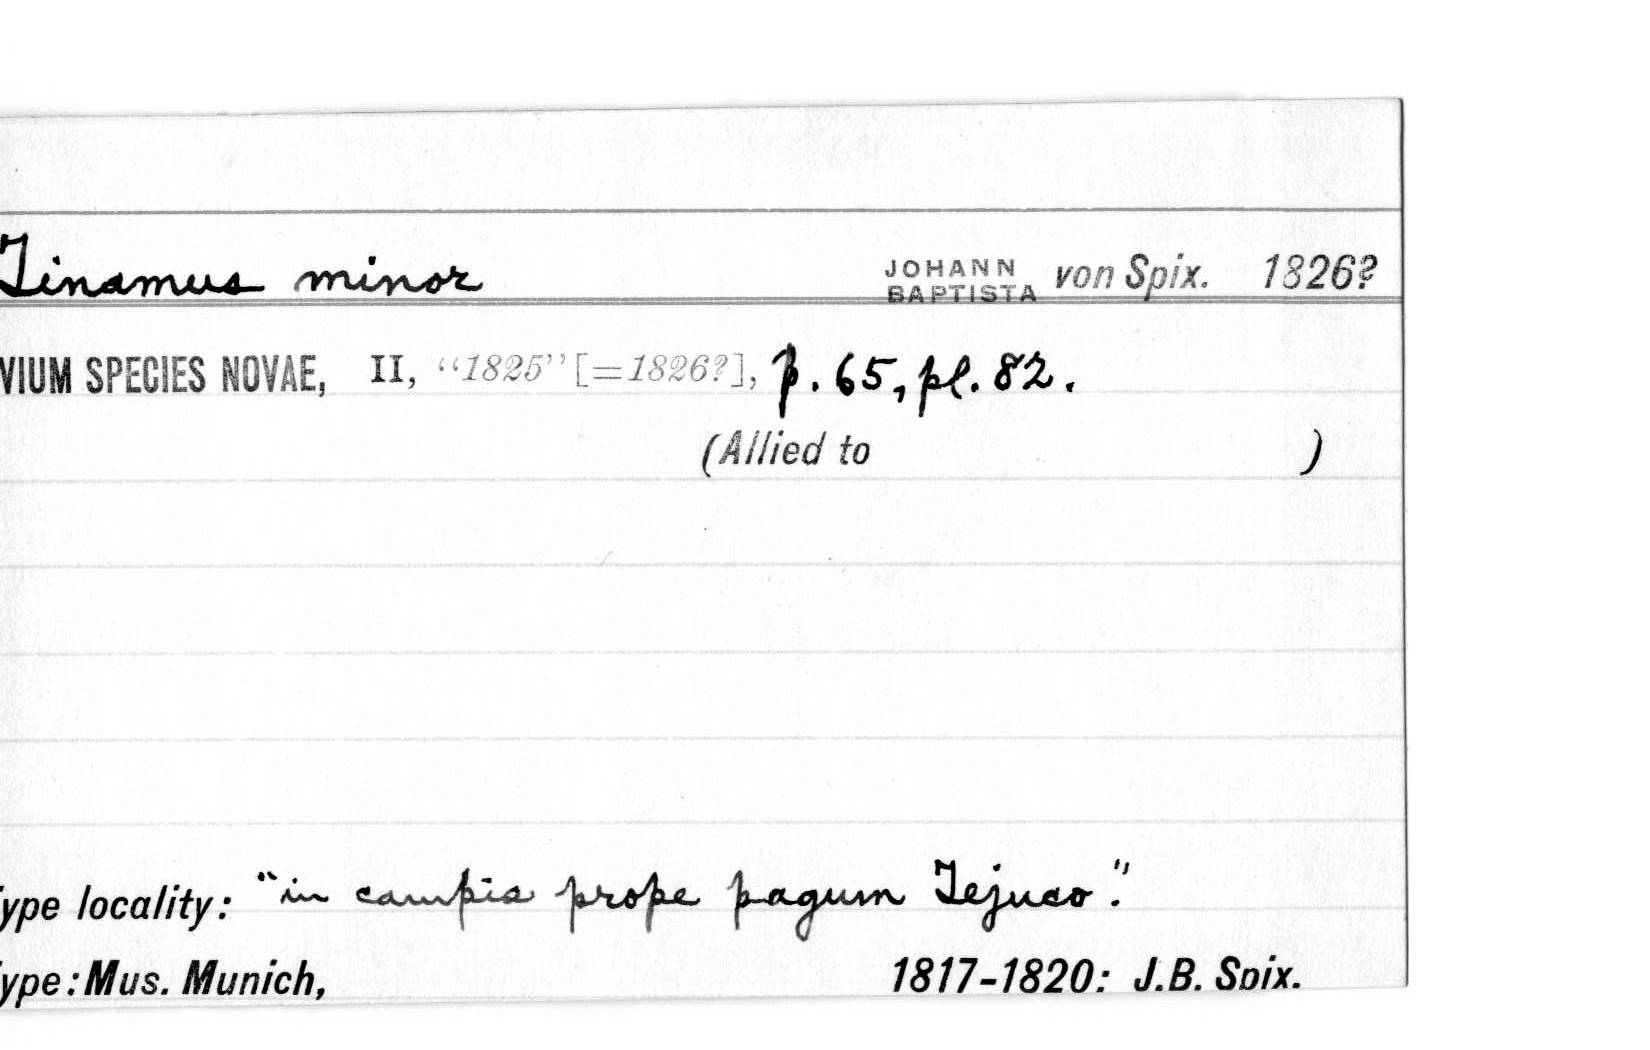 Tinamus minor JOHANN BAPTISTA von Spix. 1826?
VIUM SPECIES NOVAE, II, “1825” [=1826?], p. 65, pl. 82.
(Allied to )
ype locality: “in campis prope pagum Tejuco.”
ype: Mus. Munich, 1817-1820: J.B. Spix.